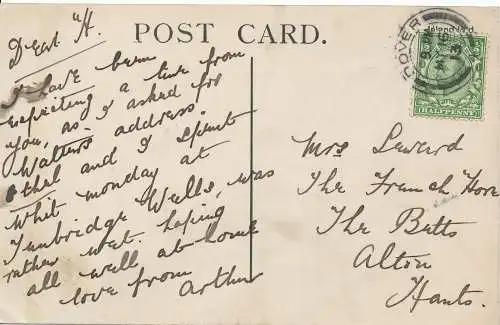 POST CARD.
Dear H.
I have been
expecting a line from
you, as I asked for
Walters address.
Ethel and I spent
whit monday at
Tunbridge Wells, was
rather wet. hoping
all well at home
love from
Arthur
DOVER
13
HALFPENNY
Mrs Seward
The French Horn
The Butts
Alton
Hants.